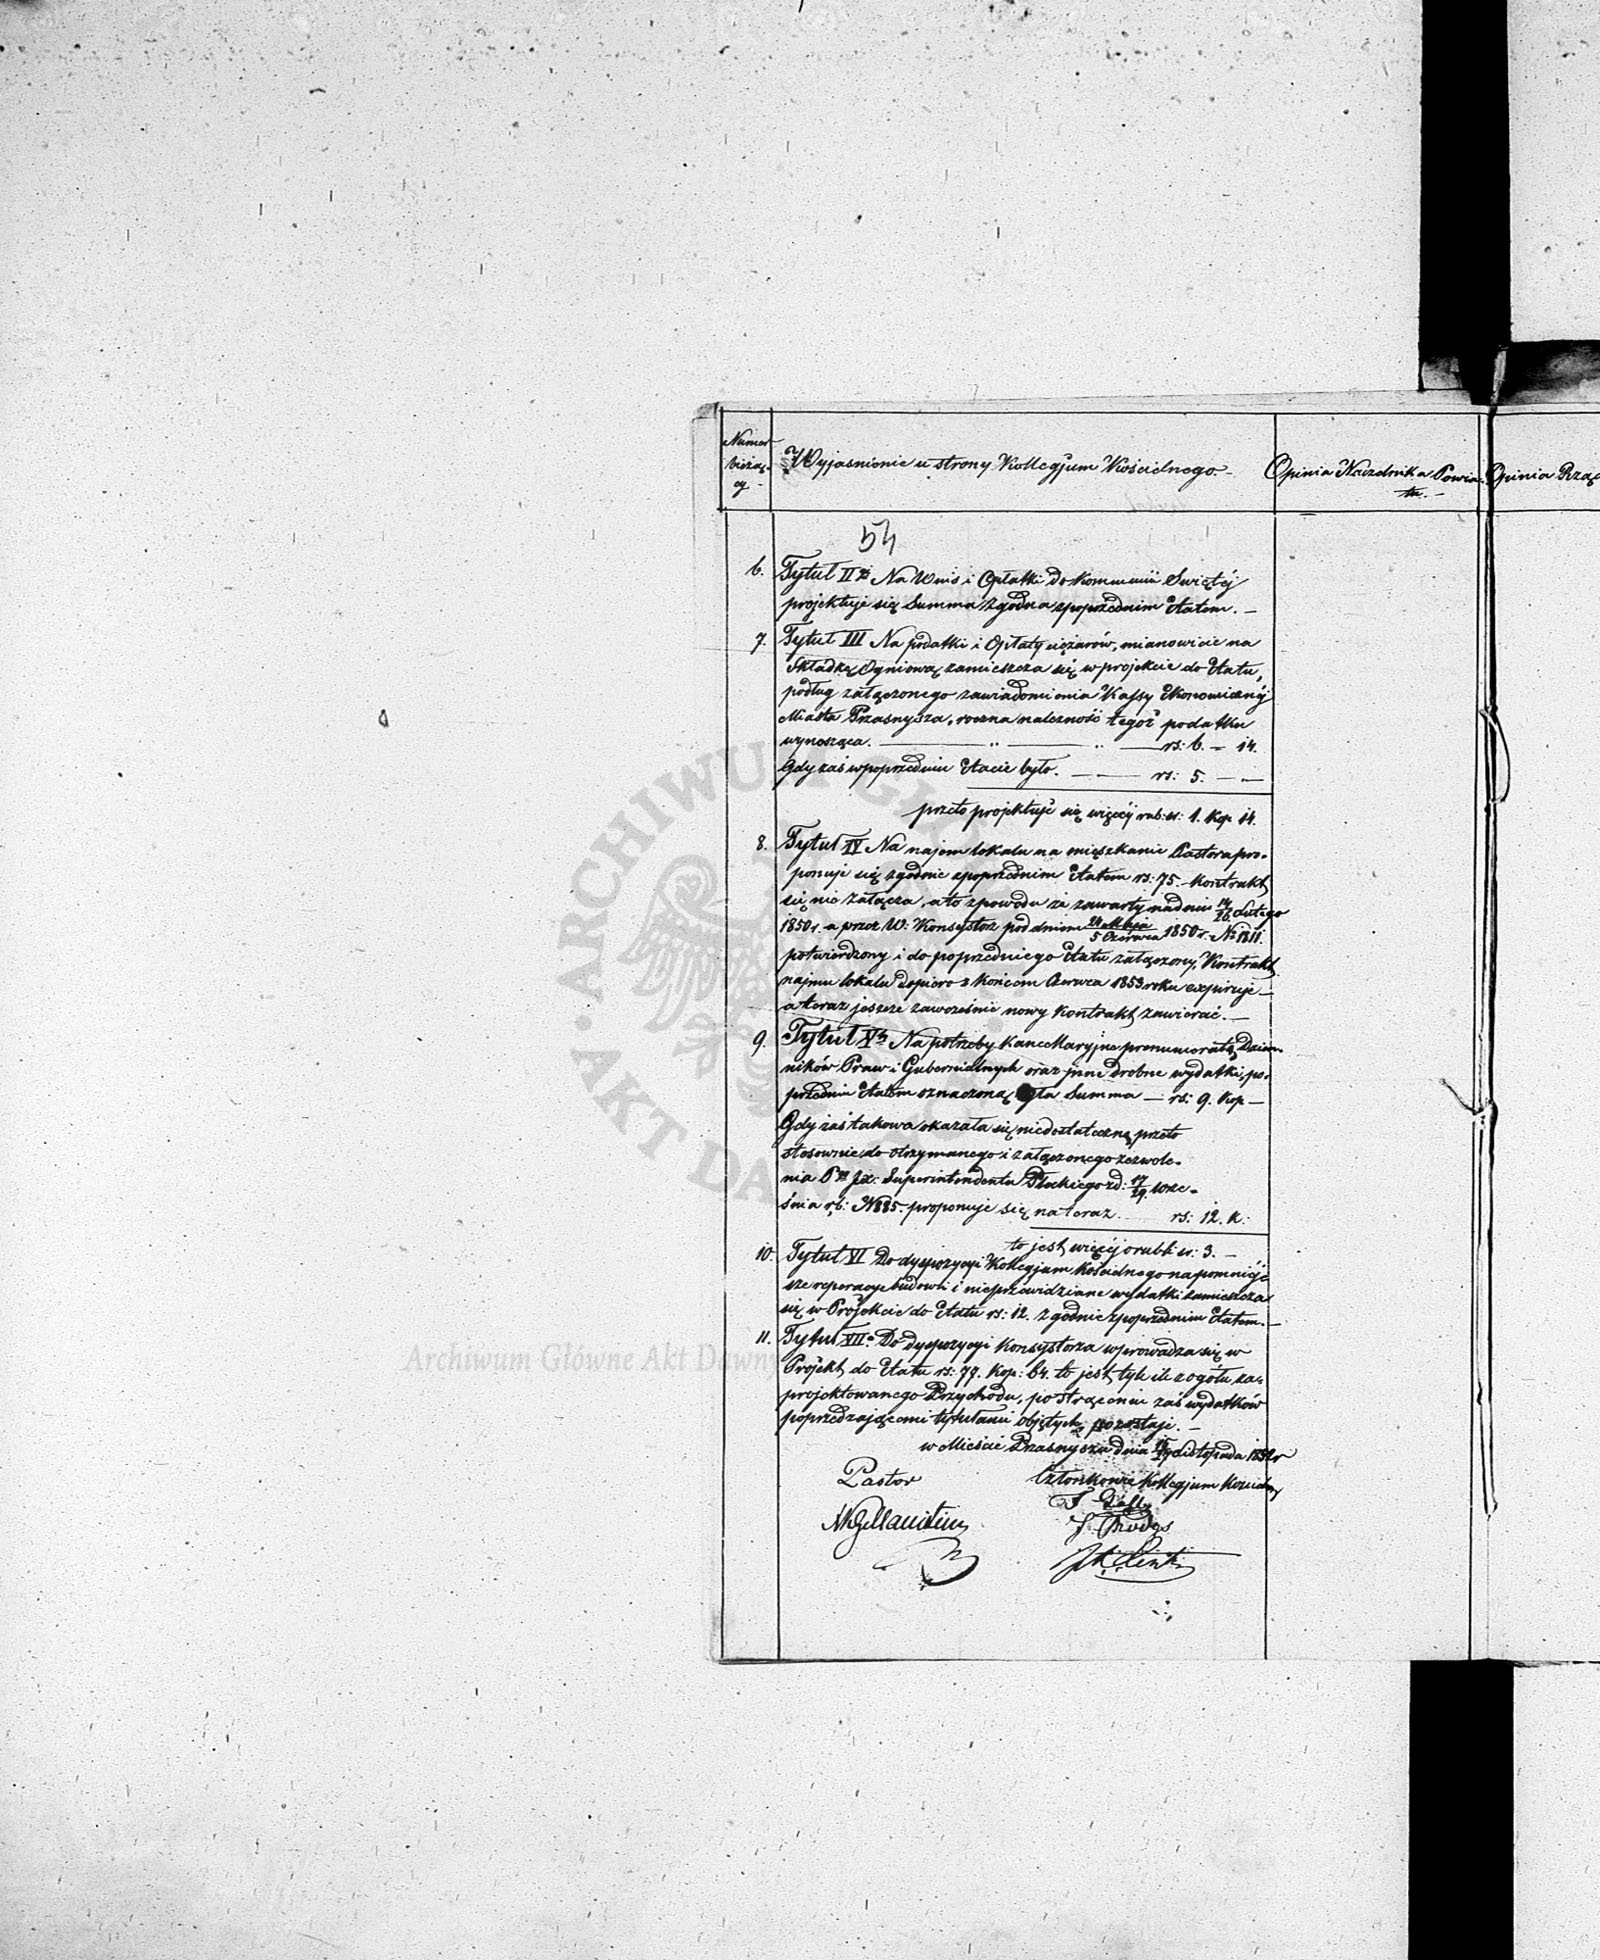 Numer
bieżą-
cy
Wyjasnienie u strony Kollegjum Kościelnego.
Opinia Naczelnika Powia-
tu.
Opinia Rzą
54
6. Tytuł II Na Wino i Opłatki do Kommunii Swiętéj
projektuje się Summa zgodna zpoprzednim Etatem.
7. Tytuł III Na podatki i Opłaty ciężarów, mianowicie na
Składkę Ogniową zamieszcza się w projekcie do Etatu,
podług załączonego zawiadomienia Kassy Ekonomicznéj
Miasta Przasnysza, roczna należność tegoż podatku
wynosząca. rs: 6. - 14.
Gdy zaś wpoprzednim Etacie było. rs: 5. -
przeto projektuje się więcéj rub: sr: 1. Kop 14.
8. Tytuł IV Na najem lokalu na mieszkanie Pastora pro-
ponuje się zgodnie zpoprzednim Etatem rs: 75. Kontrakt
się nie załącza, a to zpowodu że zawarty nadniu 14/26 Lutego
1850 r. a przez W: Konsystorz pod dniem 24 Maja/5 Czerwca 1850 r. No 1811.
potwierdzony i do poprzedniego Etatu załączony, Kontrakt
najmu lokalu dopiero z końcem Czerwca 1853 roku expiruje
a teraz jeszcze zawcześnie nowy Kontrakt zawierać.
9. Tytuł V Na potrzeby Kancellaryjne prenumeratę Dzien-
ników Praw i Gubernialnych oraz inne drobne wydatki, po-
przednim Etatem oznaczoną była Summa rs: 9. Kop
Gdy zaś takowa okazała się niedostateczną, przeto
stosownie do otrzymanego i załączonego zezwole-
nia Superintendenta Płockiego zd: 17/29 Wrze-
śnia r,b: N 885. proponuje się na teraz rs: 12. k:
to jest więcéj o rubli sr: 3.
10. Tytuł VI Do dyspozycyi Kollegjum Kościelnego na pomniéj-
sze reperacye budowli i nieprzewidziane wydatki zamieszcza
się w Projekcie do Etatu rs: 12. zgodnie zpoprzednim Etatem.
11. Tytuł VII Do dyspozycyi Konsystorza wprowadza się w
Projekt do Etatu rs: 77. Kop: 64. to jest tyle ile z ogółu za-
projektowanego Przychodu, po strąceniu zaś wydatków
poprzedzającemi tytułami objętych, pozostaje.
w Mieście Przasnyszu dnia Listopada 1852 r
Pastor
Członkowie Kollegjum Kościeln
Archiwum Główne Akt Dawny
ARCHIWUM
AKT DAW